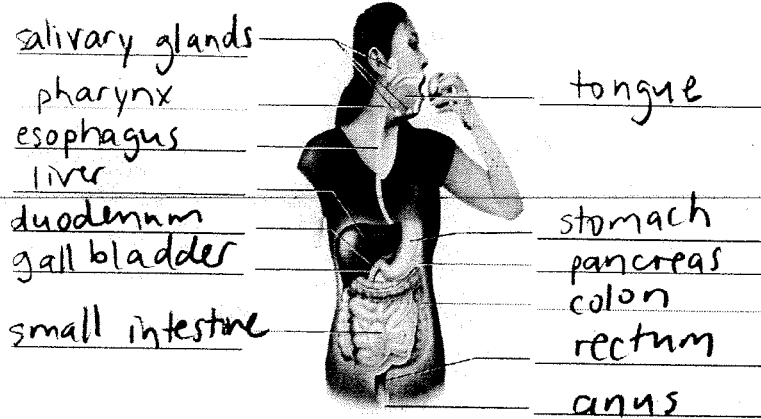 salivary glands
pharynx
esophagus
liver
duodenum
gall bladder
small intestine
tongue
stomach
pancreas
colon
rectum
anus